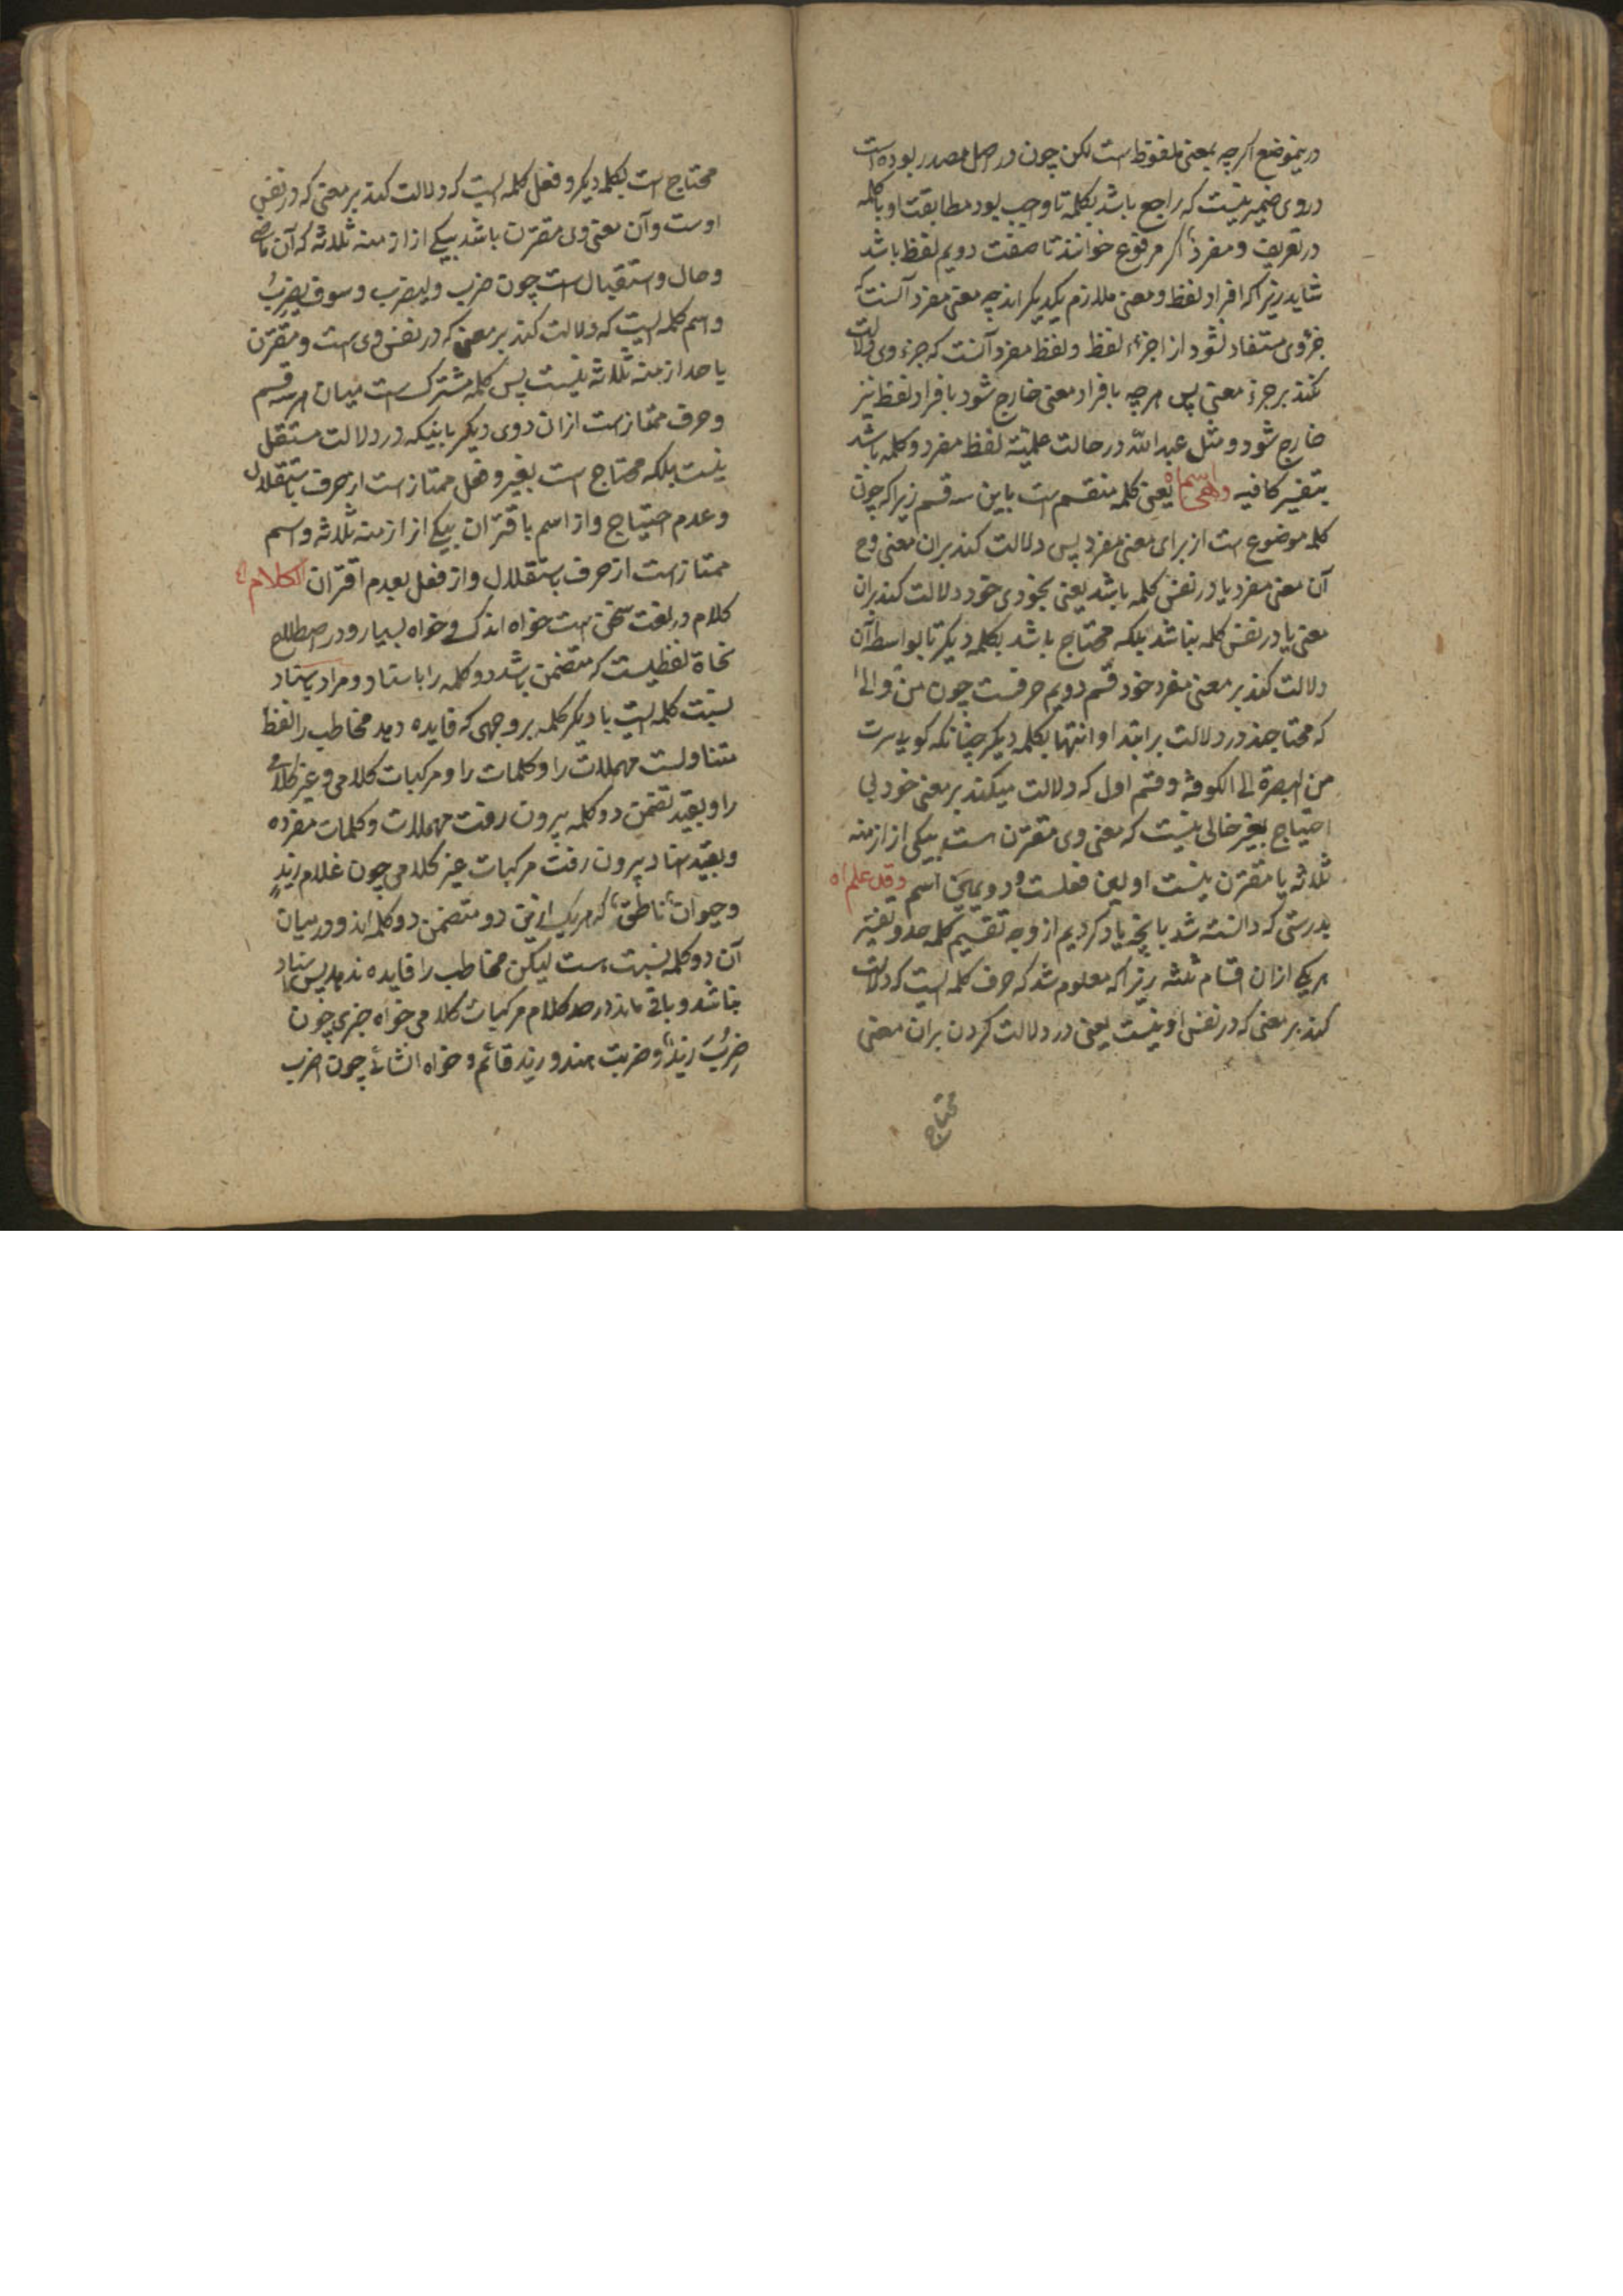 دریموضع اکرچه بمعنی ملفوظ است لکن چون در اصل مصدر بوده است
در وی ضمیر نیست که راجع باشد بکلمه تا واجب بود مطابقت او با کلمه
در تعریف و مفردٌ اکر مرفوع خوانند تا صفت دویم لفظ باشد
شاید زیرا که افراد لفظ و معنی ملازم یکدیکر اند چه معنی مفرد آنست که
جزؤ وی مستفاد نشود از اجزء لفظ و لفظ مفرد آنست که جزء وی دلالت
نکند بر جزء معنی پس هرچه بافراد معنی خارج شود بافراد لفظ نیز
خارج شود و مثل عبد الله در حالت علمیّة لفظ مفرد و کلمه باشد
بتفسیر کافیه وهی اسم اه یعنی کلمه منقسم است باین سه قسم زیرا که چون
کلمه موضوع است از برای معنی مفرد پس دلالت کند بران معنی وح
آن معنی مفرد یا در نفس کلمه باشد یعنی بخودی خود دلالت کند بران
معنی یا در نفس کلمه نباشد بلکه محتاج باشد بکلمه دیکر تا بواسطه آن
دلالت کند بر معنی مفرد خود قسم دویم حرفست چون من و الی
که محتاجند در دلالت بر ابتدا و انتها بکلمه دیکر چنانکه کویی سرت
من البصرة الی الکوفة و قسم اول که دلالت میکند بر معنی خود بی
احتیاج بغیر خالی نیست که معنی وی مقترن است بیکی از ازمنه
ثلاثه یا مقترن نیست اولین فعلست و دویمین اسم وقد علم اه
بدرستی که دانسته شد بانچه یاد کردیم از وجه تقسیم کلمه حد و تفسیر
هریکی ازان اقسام ثلثه زیرا که معلوم شد که حرف کلمه ایست که دلالت
کند بر معنی که در نفس او نیست یعنی در دلالت کردن بران معنی
محتاج
محتاج است بکلمه دیکر و فعل کلمه ایست که دلالت کند بر معنی که در نفس
اوست و آن معنی وی مقترن باشد بیکی از ازمنه ثلاثه که آن ماضی
و حال و استقبال است چون ضرب ولیضرب و سوف یضربُ
و اسم کلمه ایست که دلالت کند بر معنی که در نفس وی است و مقترن
باحد ازمنه ثلاثه نیست پس کلمه مشترک است میان هر سه قسم
و حرف ممتاز است ازان دوی دیکر باینکه در دلالت مستقل
نیست بلکه محتاج است بغیر و فعل ممتاز است از حرف باستقلال
و عدم احتیاج و از اسم باقتران بیکی از ازمنه ثلاثه و اسم
ممتاز است از حرف باستقلال و از فعل بعدم اقتران الکلام اه
کلام در لغت سخن است خواه اندکی و خواه بسیار و در اصطلاح
نحاة لفظیست که متضمن باشد دو کلمه را باسناد و مراد باسناد
نسبت کلمه ایست با دیکر کلمه بر وجهی که فایده دهد مخاطب را لفظ
متناولست مهملات را و کلمات را و مرکبات کلامی و غیر کلامی
را و بقید تضمن دو کلمه بیرون رفت مهملات و کلمات مفرده
و بقید اسناد بیرون رفت مرکبات غیر کلامی چون غلام زیدٍ
و حیوانٌ ناطقٌ که هریک از این دو متضمن دو کلمه اند و در میان
آن دو کلمه نسبت است لیکن مخاطب را فایده ندهد پس اسناد
نباشد و باقی ماند در حد کلام مرکبات کلامی خواه خبری چون
ضربَ زیدٌ و ضربت هند و زید قائم و خواه انشائی چون اضرب